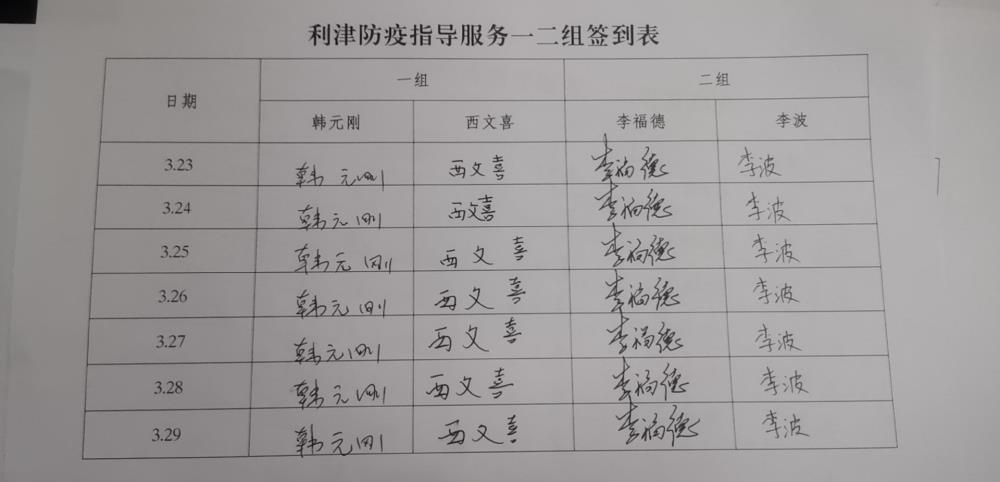 利津防疫指导服务一二组签到表
日期 一组 二组
韩元刚 西文喜 李福德 李波
3.23 韩元刚 西文喜 李福德 李波
3.24 韩元刚 西文喜 李福德 李波
3.25 韩元刚 西文喜 李福德 李波
3.26 韩元刚 西文喜 李福德 李波
3.27 韩元刚 西文喜 李福德 李波
3.28 韩元刚 西文喜 李福德 李波
3.29 韩元刚 西文喜 李福德 李波